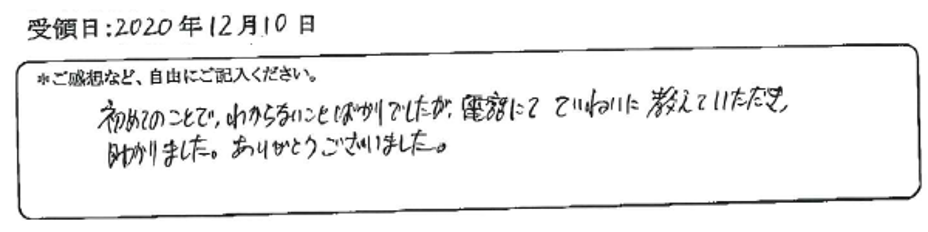 受領日:2020年12月10日
*ご感想など、自由にご記入ください。
初めてのことで、わからないことばかりでしたが、電話にて ていねいに 教えていただき、
助かりました。ありがとうございました。